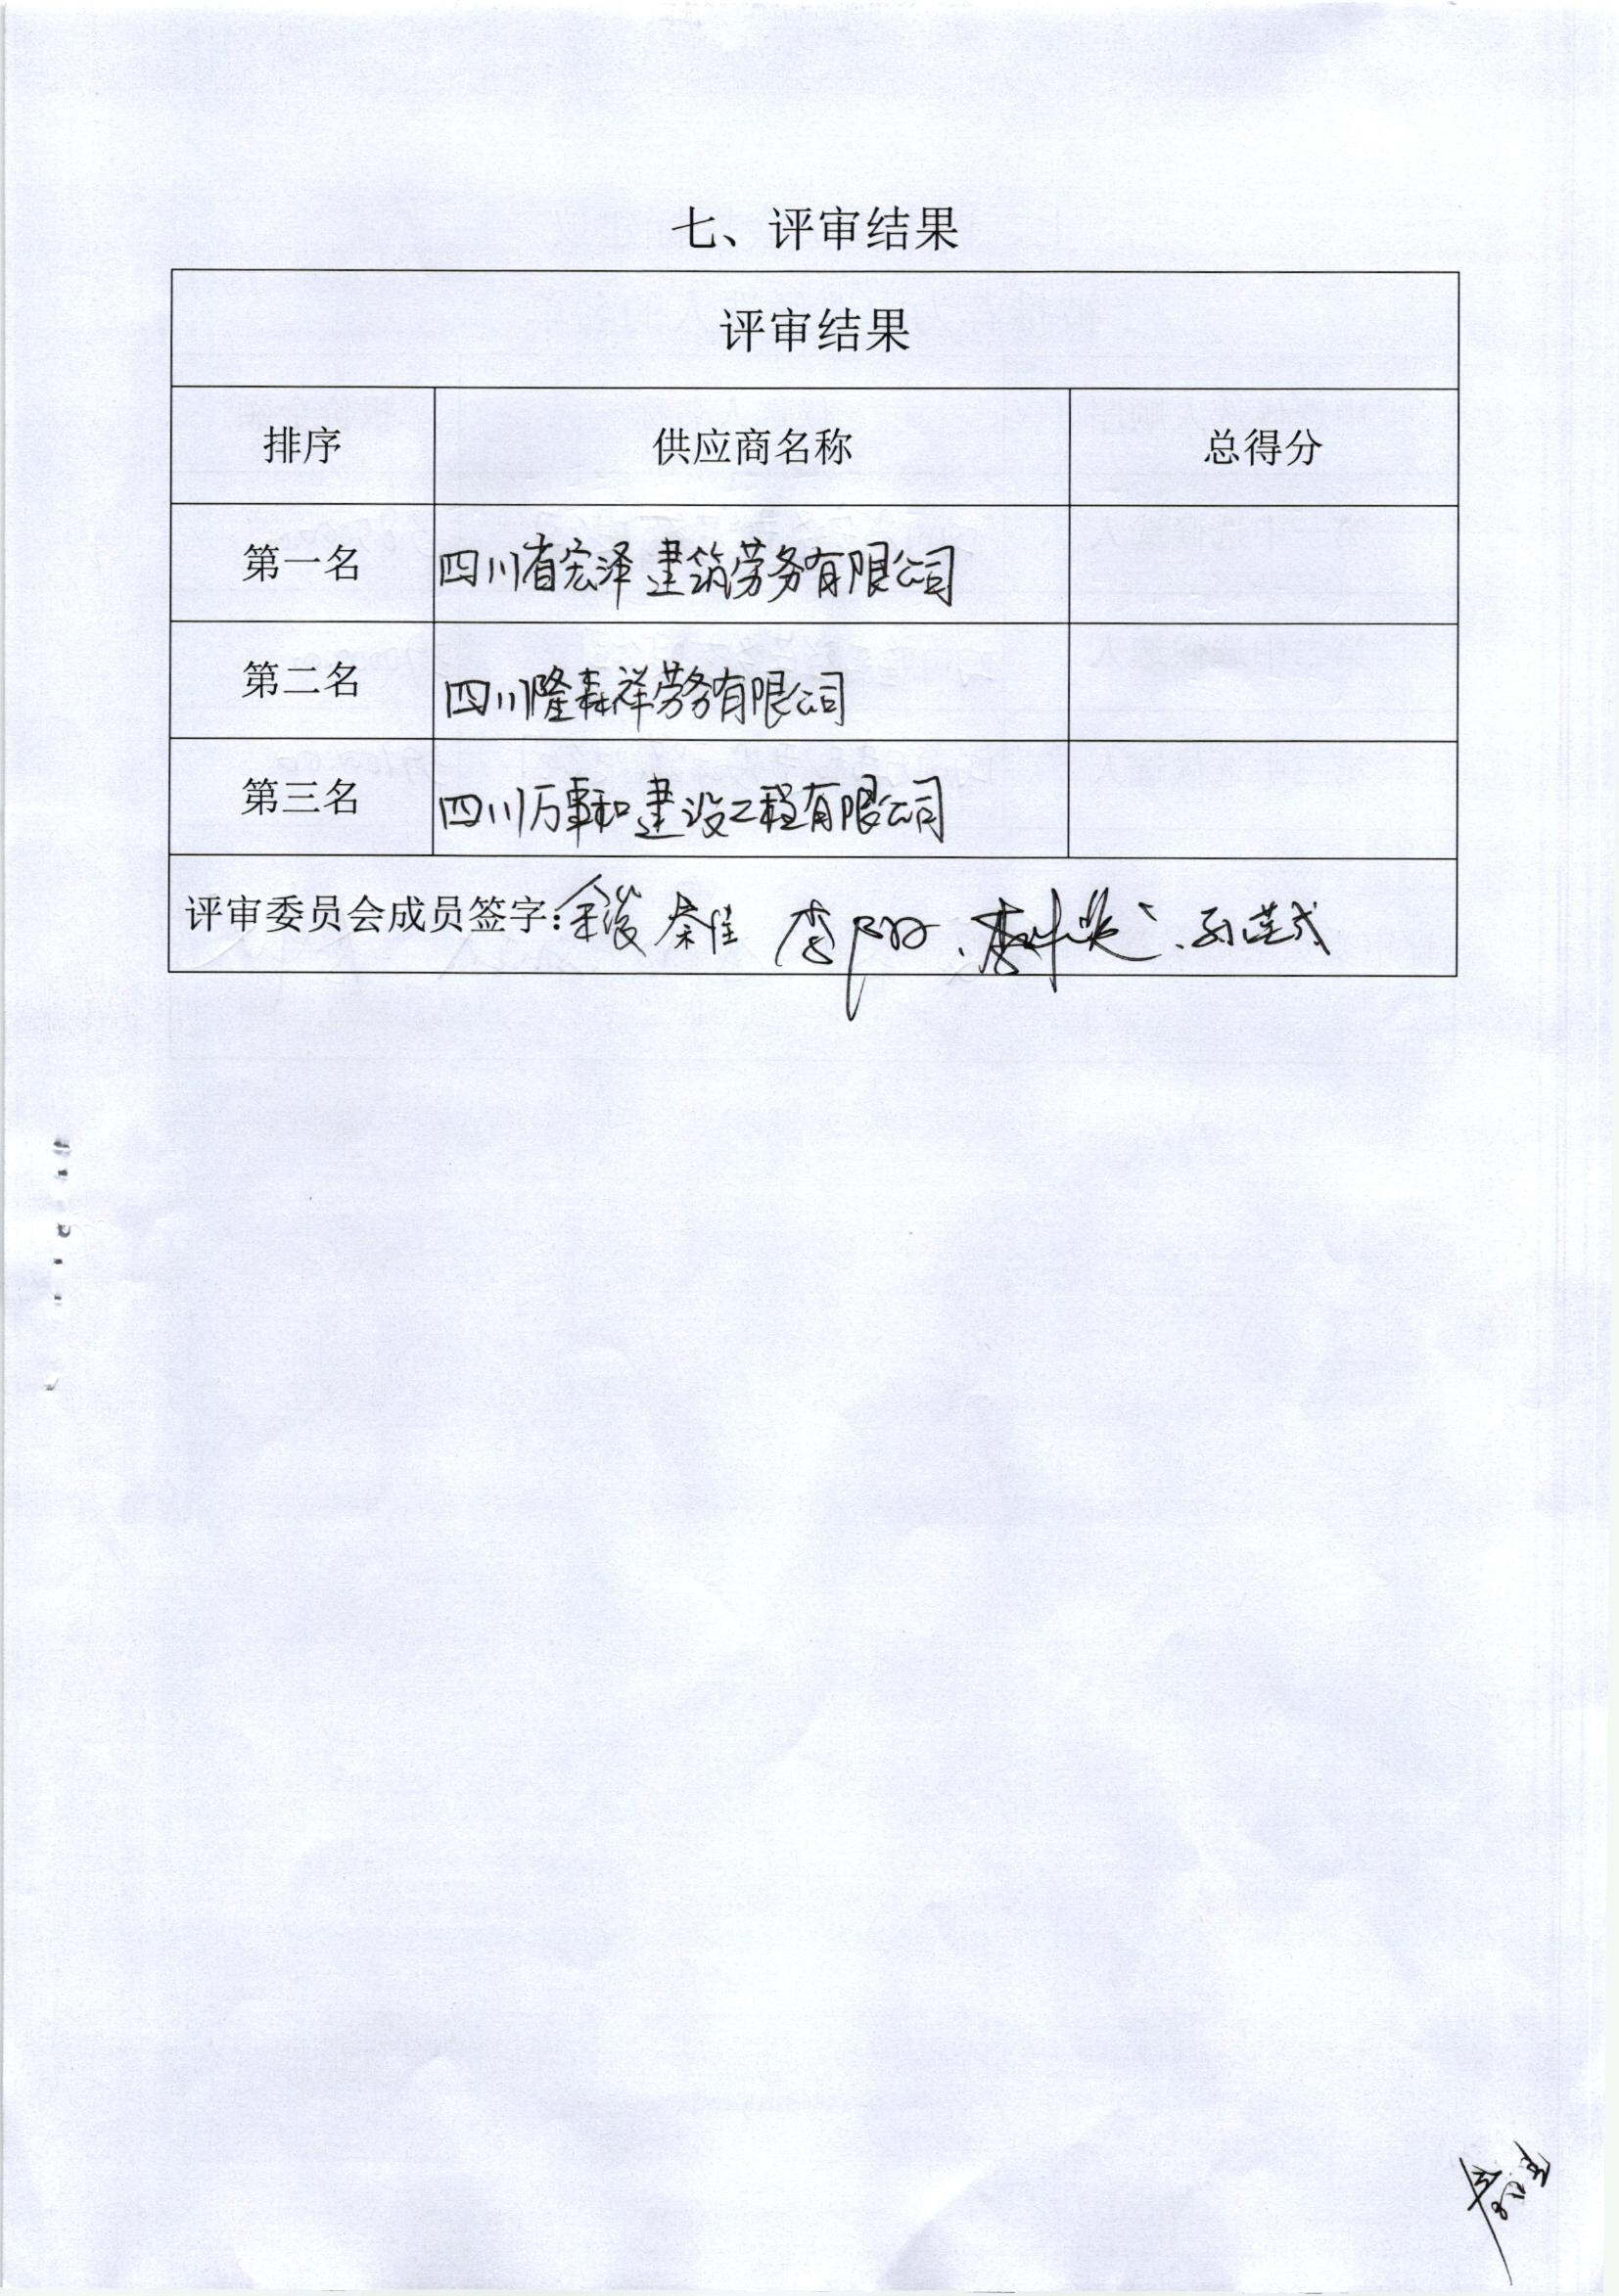 七、评审结果
评审结果
排序 供应商名称 总得分
第一名 四川省宏泽建筑劳务有限公司
第二名 四川隆森祥劳务有限公司
第三名 四川万事和建设工程有限公司
评审委员会成员签字: 秦佳